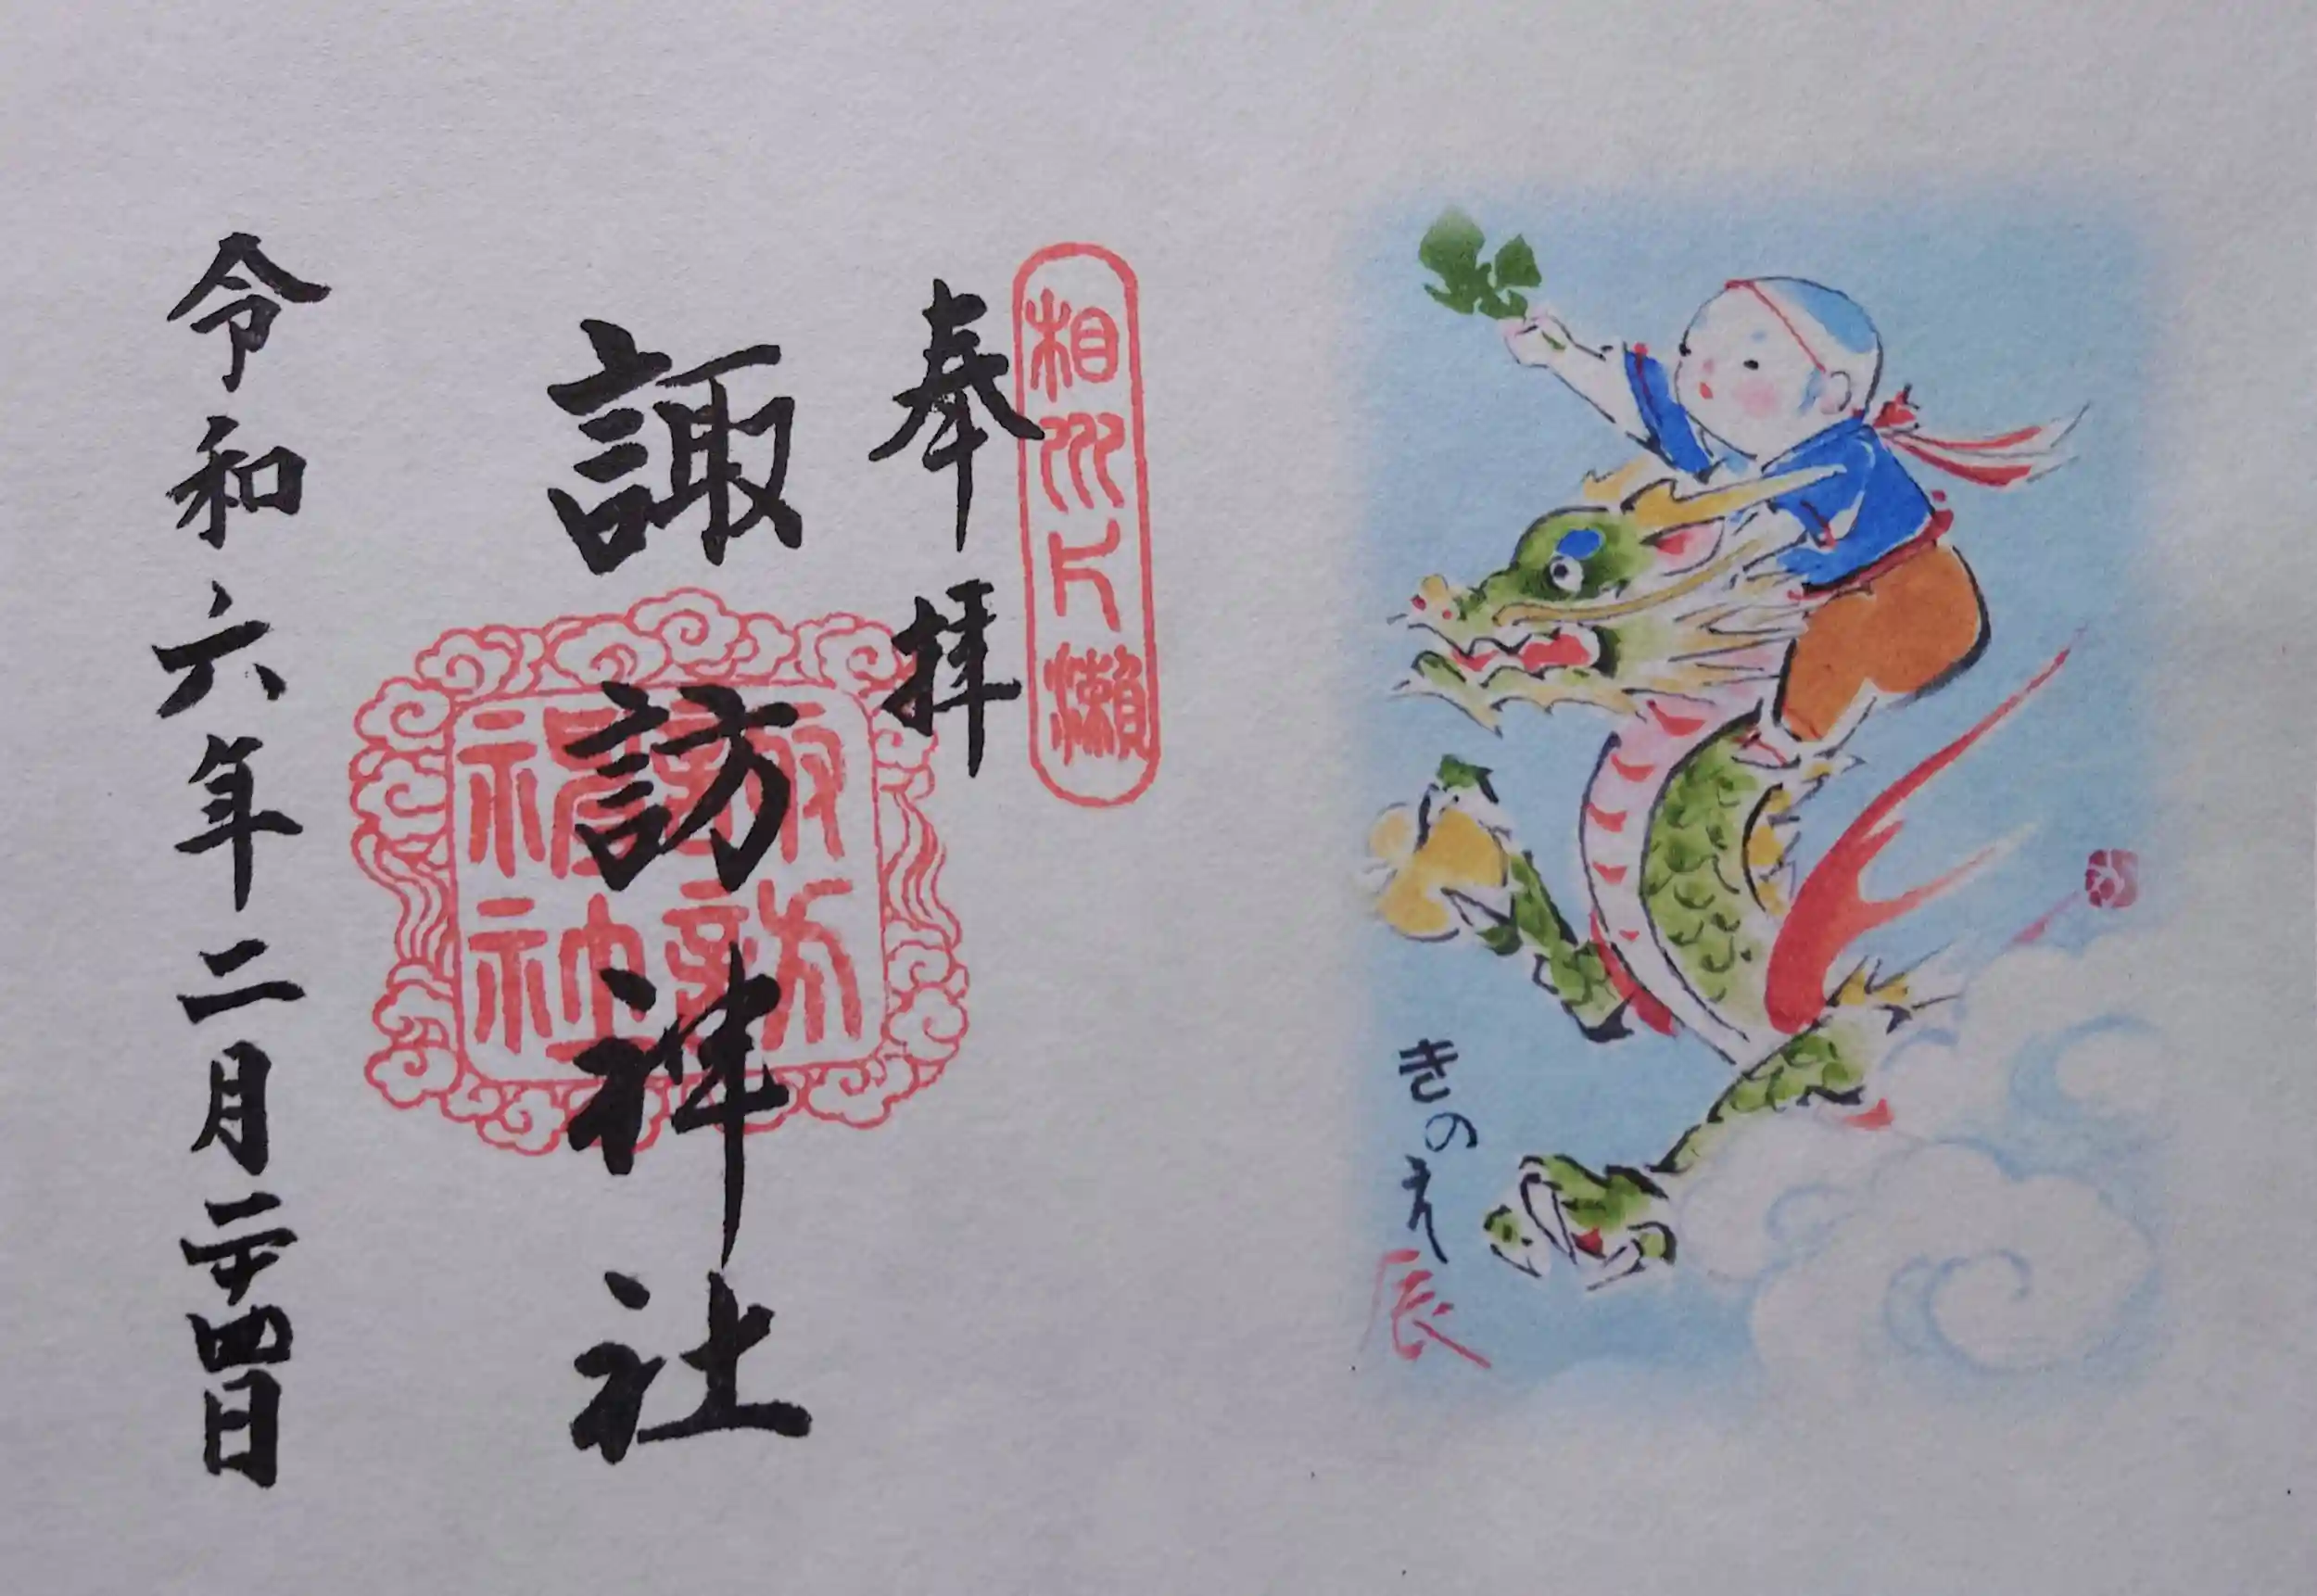 きのえ
辰
相州片瀬
奉拝
諏訪神社
令和六年二月二十四日